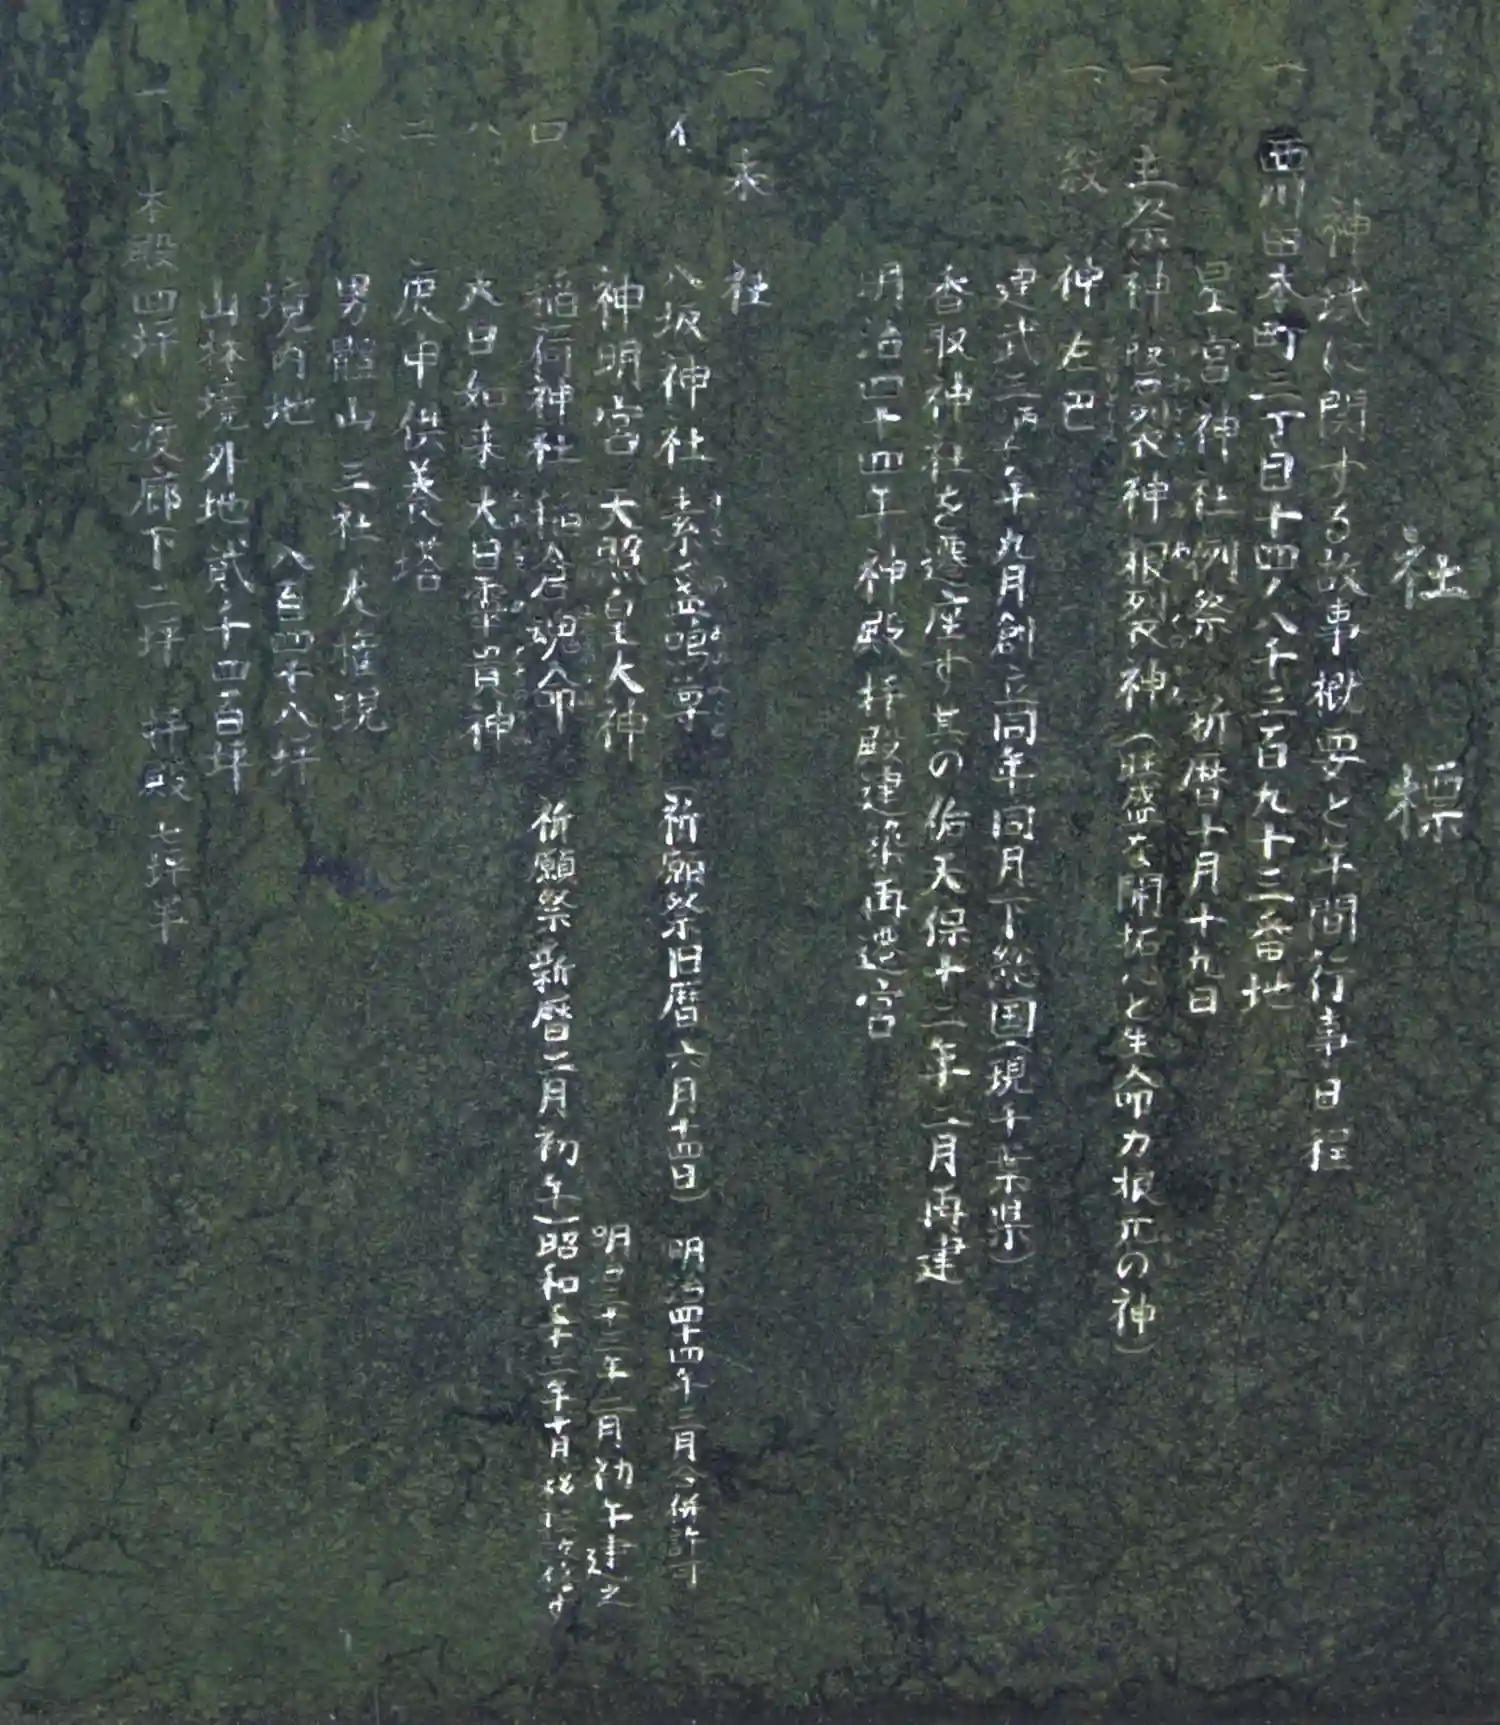 社標
神武に関する故事概要と年間行事日程
一、西川田本町三丁目十四ノ八千三百九十三番地
星宮神社例祭 祈暦十月十九日
一、主祭神 磐裂神 根裂神(旺盛な開拓心と生命力根元の神)
一、紋 神左巴
建武三丙子年九月創立同年同月下総国(現千葉県)
香取神社を遷座す其の后天保十二年二月再建
明治四十四年神殿拝殿建築再遷宮
一、末社
イ 八坂神社 素盞鳴尊 (祈願祭旧暦六月十四日) 明治四十四年三月合併許可
神明宮 天照皇大神 明治三十三年二月初午建之
ロ 稲荷神社 稲倉魂命 祈願祭新暦二月初午)昭和五十二年十月
ハ 大日如来 大日霊貴神
ニ 庚申供養塔
男體山三社大権現
境内地 八百四十八坪
山林境外地貳千四百坪
一 本殿四坪 渡廊下二坪 拝殿七坪半